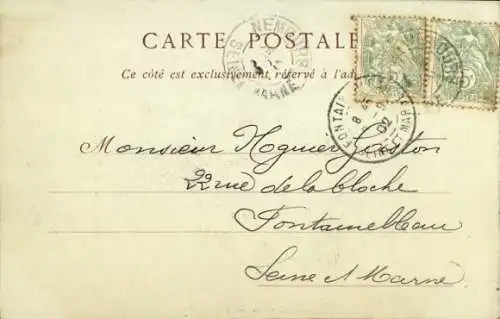 CARTE POSTALE
Ce côté est exclusivement réservé à l'adr
NEMOURS
SEINE
MARNE
FONTAIN
8
9
02
MAR
Monsieur Gaston
22 rue de la Cloche
Fontainebleau
Seine et Marne